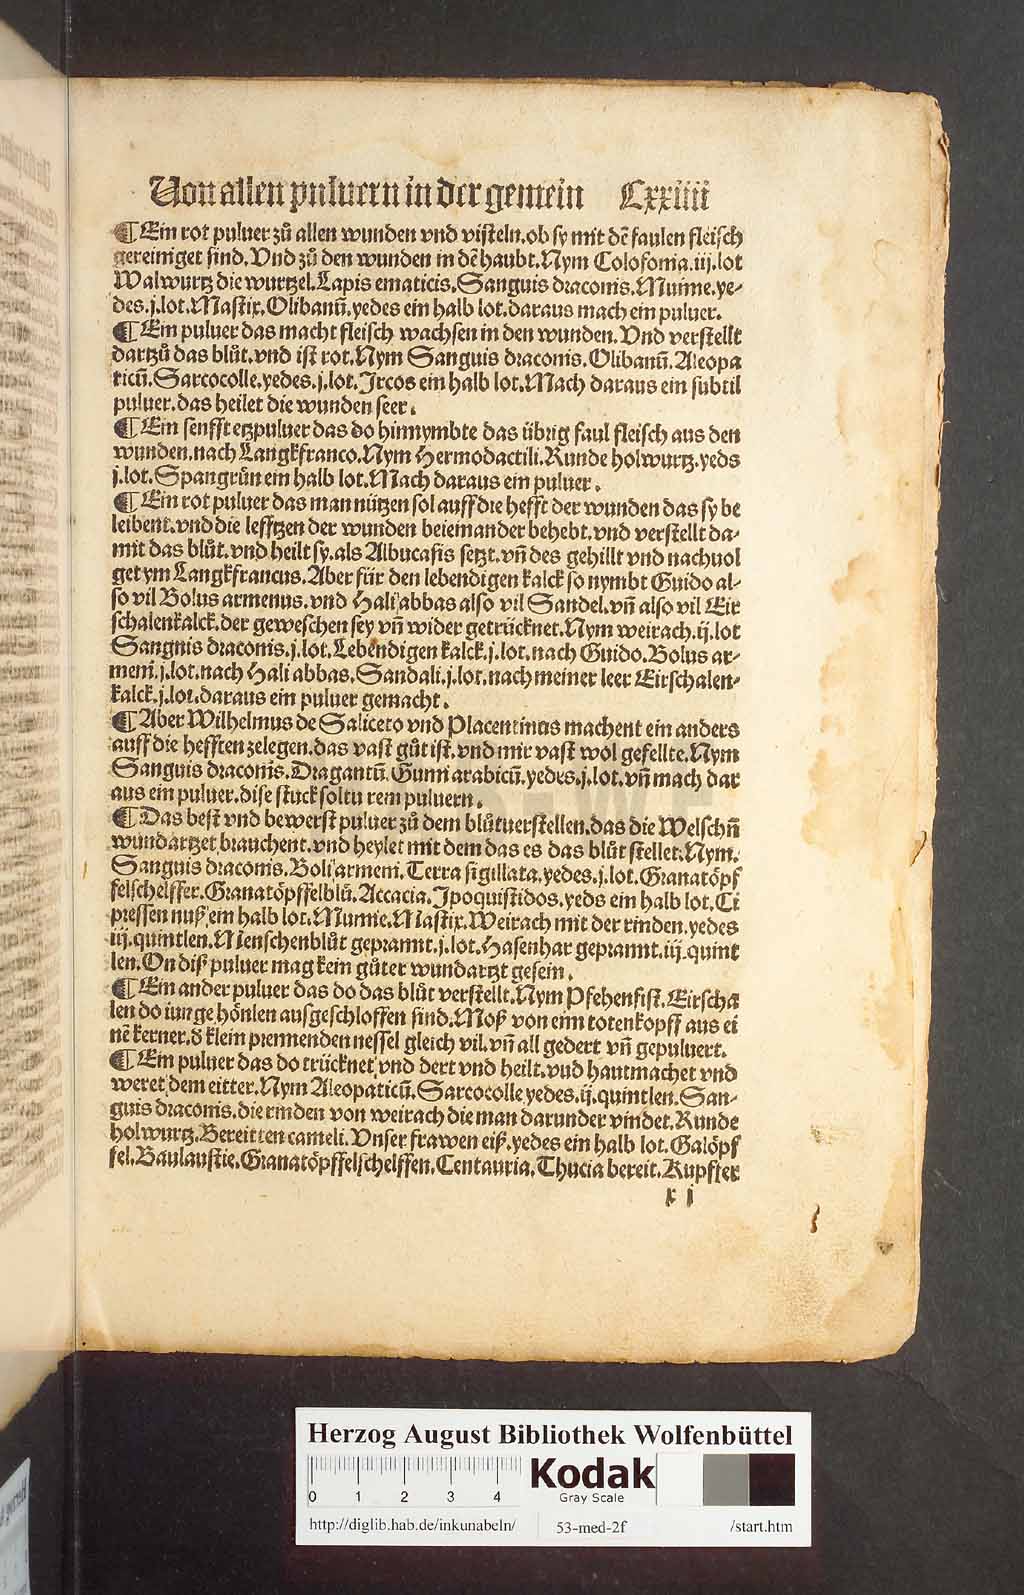 Von allen puluern in der gemein Cxxiiii
¶ Ein rot puluer zů allen wunden vnd visteln. ob sy mit dẽ faulen fleisch
gereiniget sind. Vnd zů den wunden in dẽ haubt. Nym Colofonia. iij. lot
Walwurtz die wurtzel. Lapis ematicis. Sanguis draconis. Mumie. ye-
des. j. lot. Mastix. Olibanũ. yedes ein halb lot. daraus mach ein puluer.
¶ Ein puluer das macht fleisch wachsen in den wunden. Vnd verstellt
dartzů das blůt. vnd ist rot. Nym Sanguis draconis. Olibanũ. Aleopa
ticũ. Sarcocolle. yedes. j. lot. Ircos ein halb lot. Mach daraus ein subtil
puluer. das heilet die wunden seer.
¶ Ein senfft etzpuluer das do hinnymbte das übrig faul fleisch aus den
wunden. nach Langkfranco. Nym Hermodactili. Runde holwurtz. yeds
j. lot. Spangrün ein halb lot. Mach daraus ein puluer.
¶ Ein rot puluer das man nützen sol auff die hefft der wunden das sy be
leibent. vnd die lefftzen der wunden beieinander behebt. vnd verstellt da-
mit das blůt. vnd heilt sy. als Albucasis setzt. vñ des gehillt vnd nachuol
get ym Langkfrancus. Aber für den lebendigen kalck so nymbt Guido al-
so vil Bolus armenus. vnd Hali abbas also vil Sandel. vñ also vil Eir
schalenkalck. der geweschen sey vñ wider getrücknet. Nym weirach. ij. lot
Sanguis draconis. j. lot. Lebendigen kalck. j. lot. nach Guido. Bolus ar-
meni. j. lot. nach Hali abbas. Sandali. j. lot. nach meiner leer Eirschalen-
kalck. j. lot. daraus ein puluer gemacht.
¶ Aber Wilhelmus de Saliceto vnd Placentinus machent ein anders
auff die hefften zelegen. das vast gůt ist. vnd mir vast wol gefellte. Nym
Sanguis draconis. Dragantũ. Gumi arabicũ. yedes. j. lot. vñ mach dar
aus ein puluer. dise stuck soltu rein puluern.
¶ Das best vnd bewerst puluer zů dem blůtuerstellen. das die Welschñ
wundartzet brauchent. vnd heylet mit dem das es das blůt stellet. Nym.
Sanguis draconis. Boli armeni. Terra sigillata. yedes. j. lot. Granatöpf
felschelffer. Granatöpffelblů. Accacia. Ipoquistidos. yeds ein halb lot. Ci
pressen nuß ein halb lot. Mumie. Mastix. Weirach mit der rinden. yedes
iij. quintlen. Menschenblůt geprannt. j. lot. Hasenhar geprannt. iij. quint
len. On diß puluer mag kein gůter wundartzt gesein.
¶ Ein ander puluer das do das blůt verstellt. Nym Pfehenfist. Eirscha
len do iunge hönlen ausgeschloffen sind. Moß von eim totenkopff aus ei
nẽ kerner. d̕ klein prennenden nessel gleich vil. vñ all gedert vñ gepuluert.
¶ Ein puluer das do trücknet vnd dert vnd heilt. vnd hautmachet vnd
weret dem eitter. Nym Aleopaticũ. Sarcocolle yedes. ij. quintlen. San-
guis draconis. die rinden von weirach die man darunder vindet. Runde
holwurtz. Bereitten cameli. Vnser frawen eiß. yedes ein halb lot. Galöpf
fel. Baulaustie. Granatöpffelschelffen. Centauria. Thucia bereit. Kupffer
x j
Herzog August Bibliothek Wolfenbüttel
0 1 2 3 4
Kodak
Gray Scale
http://diglib.hab.de/inkunabeln/ 53-med-2f /start.htm